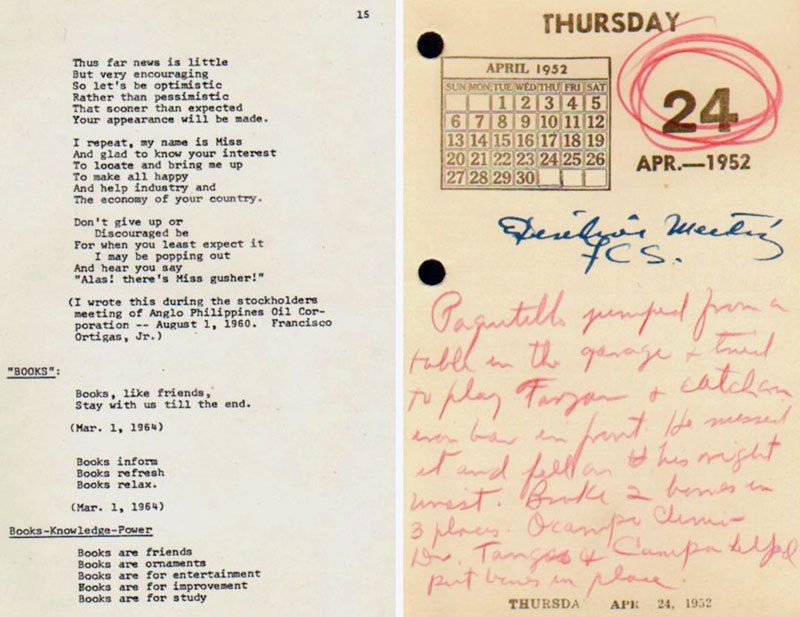 15
Thus far news is little
But very encouraging
So let's be optimistic
Rather than pessimistic
That sooner than expected
Your appearance will be made.
I repeat, my name is Miss
And glad to know your interest
To locate and bring me up
To make all happy
And help industry and
The economy of your country.
Don't give up or
Discouraged be
For when you least expect it
I may be popping out
And hear you say
"Alas! there's Miss gusher!"
(I wrote this during the stockholders
meeting of Anglo Philippines Oil Cor-
poration -- August 1, 1960. Francisco
Ortigas, Jr.)
"BOOKS":
Books, like friends,
Stay with us till the end.
(Mar. 1, 1964)
Books inform
Books refresh
Books relax.
(Mar. 1, 1964)
Books-Knowledge-Power
Books are friends
Books are ornaments
Books are for entertainment
Books are for improvement
Books are for study
THURSDAY
APRIL 1952
SUN MON TUE WED THU FRI SAT
1 2 3 4 5
6 7 8 9 10 11 12
13 14 15 16 17 18 19
20 21 22 23 24 25 26
27 28 29 30
24
APR.—1952
Meeting
Paquitillo jumped from a
table in the garage & tried
to play Tarzan & catch an
iron bar in front. He missed
it and fell on his right
wrist. Broke 2 bones in
3 places. Ocampo Clinic
Dr. & Campa helped
put bones in place.
THURSDA APR 24, 1952